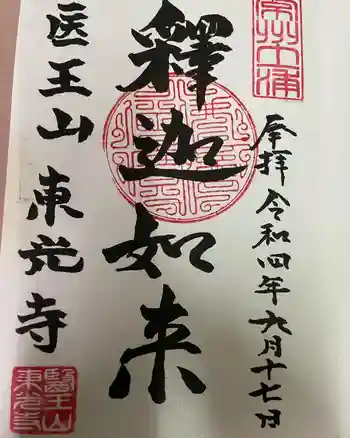 常州土浦
奉拝 令和四年六月十七日
釋迦如来
医王山 東光寺
醫王山
東光寺